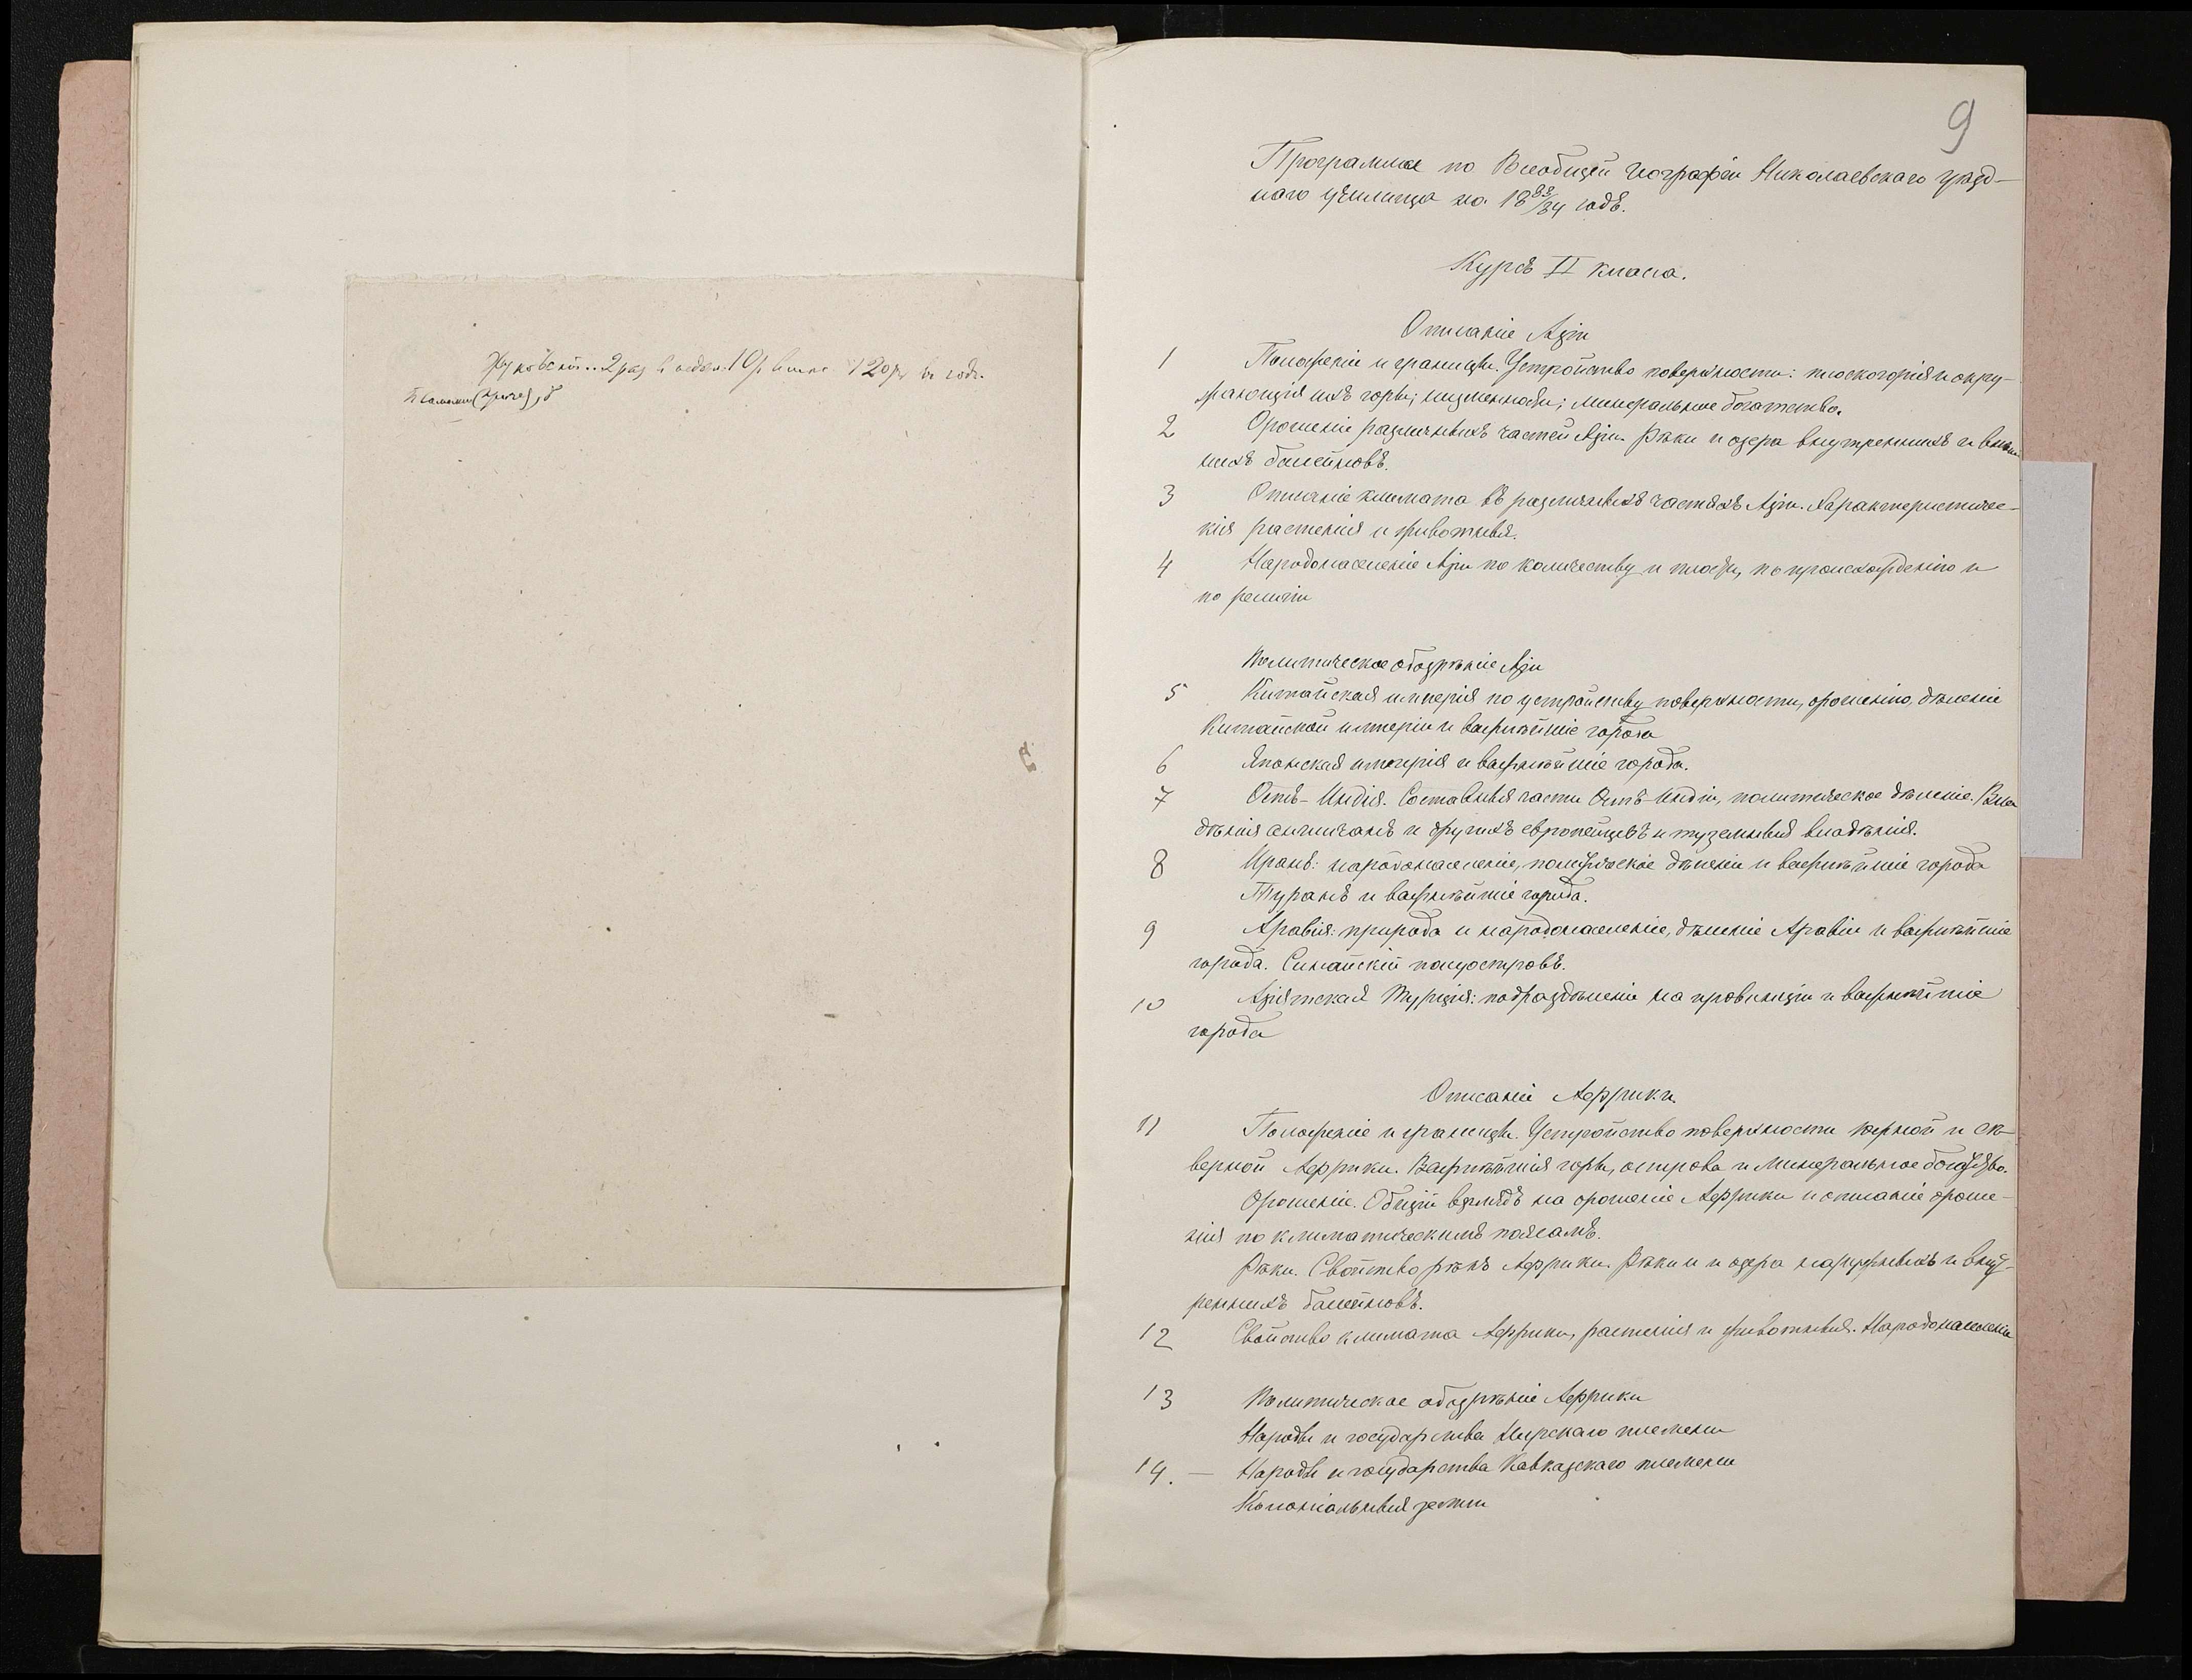 9
Программа по Всеобщей географіи Николаевскаго уѣзд-
наго училища на 18 83/84 годъ.
Курсъ II класа.
Описаніе Азіи
1 Положеніе и границы. Устройство поверхности: плоскогорія и окру-
жающія ихъ горы; низменности; минеральное богатство.
2 Орошеніе различныхъ частей Азіи. Рѣки и озера внутреннихъ и внѣш-
нихъ басейновъ.
3 Описаніе климата въ различныхъ частяхъ Азіи. Характеристичес-
кія растенія и животныя.
4 Народонаселеніе Азіи по количеству и плотн, по происхожденію и
по религіи
Политическое обозрѣніе Азіи
5 Китайская имперія по устройству поверхности, орошенію, дѣленіе
Китайской имперіи и важнѣйшіе города
6 Японская имперія и важнѣйшіе города.
7 Остъ-Индія. Составныя части Остъ-Индіи, политическое дѣленіе. Вла
дѣнія англичанъ и другихъ европейцевъ и туземныя владѣнія.
8 Иранъ: народонаселеніе, политическое дѣленіе и важнѣйшіе города
Туранъ и важнѣйшіе города.
9 Аравія: природа и народонаселеніе, дѣленіе Аравіи и важнѣйшіе
города. Синайскій полуостровъ.
10 Азіятская Турція: подраздѣленіе на провинціи и важнѣйшіе
города
Описаніе Африки.
11 Положеніе и границы. Устройство поверхности южной и сѣ-
верной Африки. Важнѣйшія горы, острова и минеральное богатство.
Орошеніе. Общій взглядъ на орошеніе Африки и описаніе ороше-
нія по климатическимъ поясамъ.
Рѣки. Свойство рѣкъ Африки. Рѣки и и озера наружныхъ и внут-
реннихъ басейновъ.
12 Свойство климата Африки, растенія и животныя. Народонаселеніе
13 Политическое обозрѣніе Африки
Народы и государства Негрскаго племени
14. — Народы и государства Кавказскаго племени
Колоніальныя земли